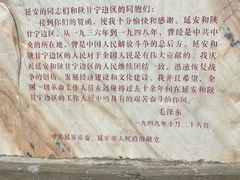 延安的同志们和陕甘宁边区的同胞们：
接到你们的贺函，使我十分愉快和感谢。延安和陕
甘宁边区，从一九三六年到一九四八年，曾经是中共中
央的所在地，曾经是中国人民解放斗争的总后方。延安和
陕甘宁边区的人民对于全国人民是有伟大贡献的。我庆
祝延安和陕甘宁边区的人民继续团结一致，迅速恢复战
争的创伤，发展经济建设和文化建设。我并且希望，全
国一切革命工作人员永远保持过去十余年间在延安和陕
甘宁边区的工作人员中所具有的艰苦奋斗的作风。
毛泽东
一九四九年十月二十六日
中共延安市委、延安市人民政府敬立